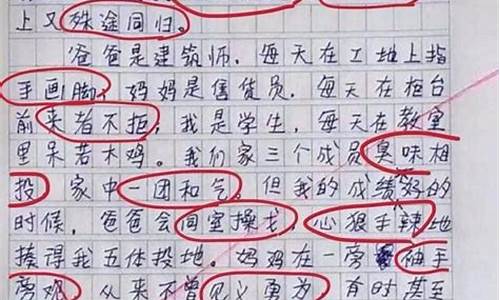 上又殊途同归。
爸爸是建筑师，每天在工地上指
手画脚，妈妈是售货员，每天在柜台
前来者不拒，我是学生，每天在教室
里呆若木鸡。我们家三个成员臭味相
投，家中一团和气。但我的成绩不好的
时候，爸爸会同室操戈，心狠手辣地
揍得我五体投地。妈妈在一旁袖手
旁观，从来不曾见义勇为，有时甚至